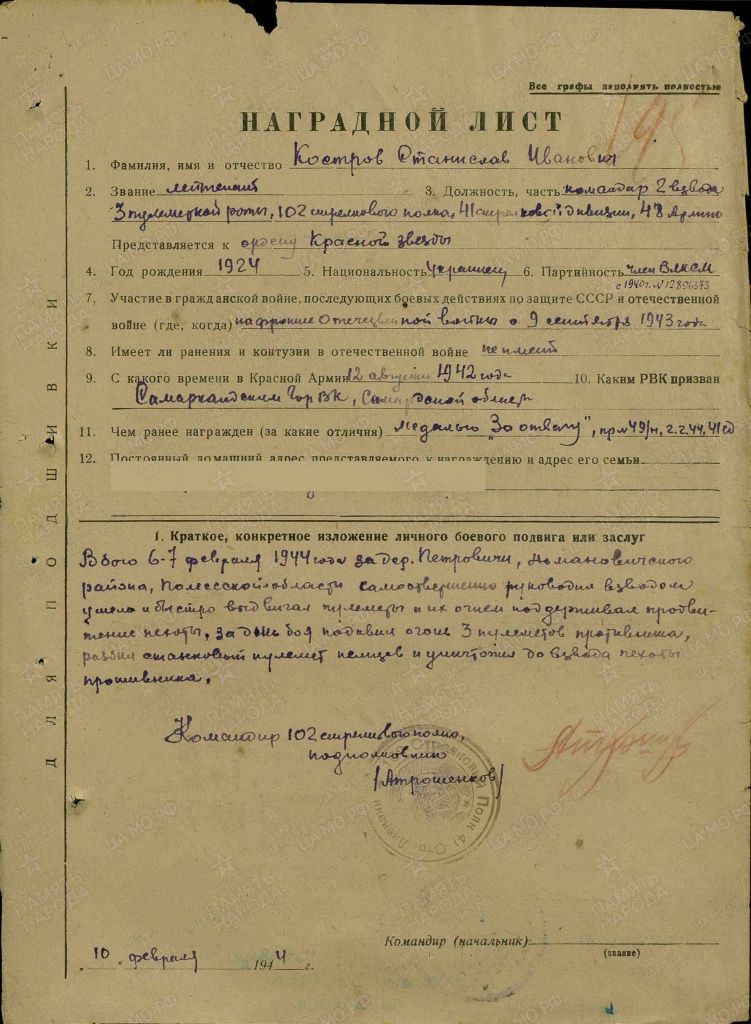 Все графы заполнять полностью
195
НАГРАДНОЙ ЛИСТ
1. Фамилия, имя и отчество Костров Станислав Иванович
2. Звание лейтенант 3. Должность, часть командир 2 взвода
3 пулеметной роты, 102 стрелкового полка, 41 стрелковой дивизии, 48 Армии
Представляется к ордену Красной звезды
4. Год рождения 1924 5. Национальность Украинец 6. Партийность член ВЛКСМ
с 1940г. №12806373
7, Участие в гражданской войне, последующих боевых действиях по защите СССР и отечественной
войне (где, когда) на фронте Отечественной войны с 9 сентября 1943 года
8. Имеет ли ранения и контузии в отечественной войне не имеет
9. С какого времени в Красной Армии 12 августа 1942 года 10. Каким РВК призван
Самаркандским ГорВК, области
11. Чем ранее награжден (за какие отличия) Медалью "За отвагу", пр №49/н, 2.2.44, 41 сд
12. Постоянный домашний адрес представляемого к награждению и адрес его семьи
ДЛЯ ПОДШИВКИ
1. Краткое, конкретное изложение личного боевого подвига или заслуг
В бою 6-7 февраля 1944 года за дер. Петровичи, Домановичского
района, Полесской области самоотверженно руководил взводом
умело и быстро выдвигал пулеметы и их огнем поддерживал продви-
жение пехоты, за день боя подавил огонь 3 пулеметов противника,
разбил станковый пулемет немцев и уничтожил до взвода пехоты
противника.
Командир 102 стрелкового полка,
подполковник
/Атрошенков/
Стрелковый Полк 41 Стр. Дивизии
Командир (начальник)
(звание)
"10" февраля 1944 г.
ПАМЯТЬ НАРОДА
ЦАМО.РФ